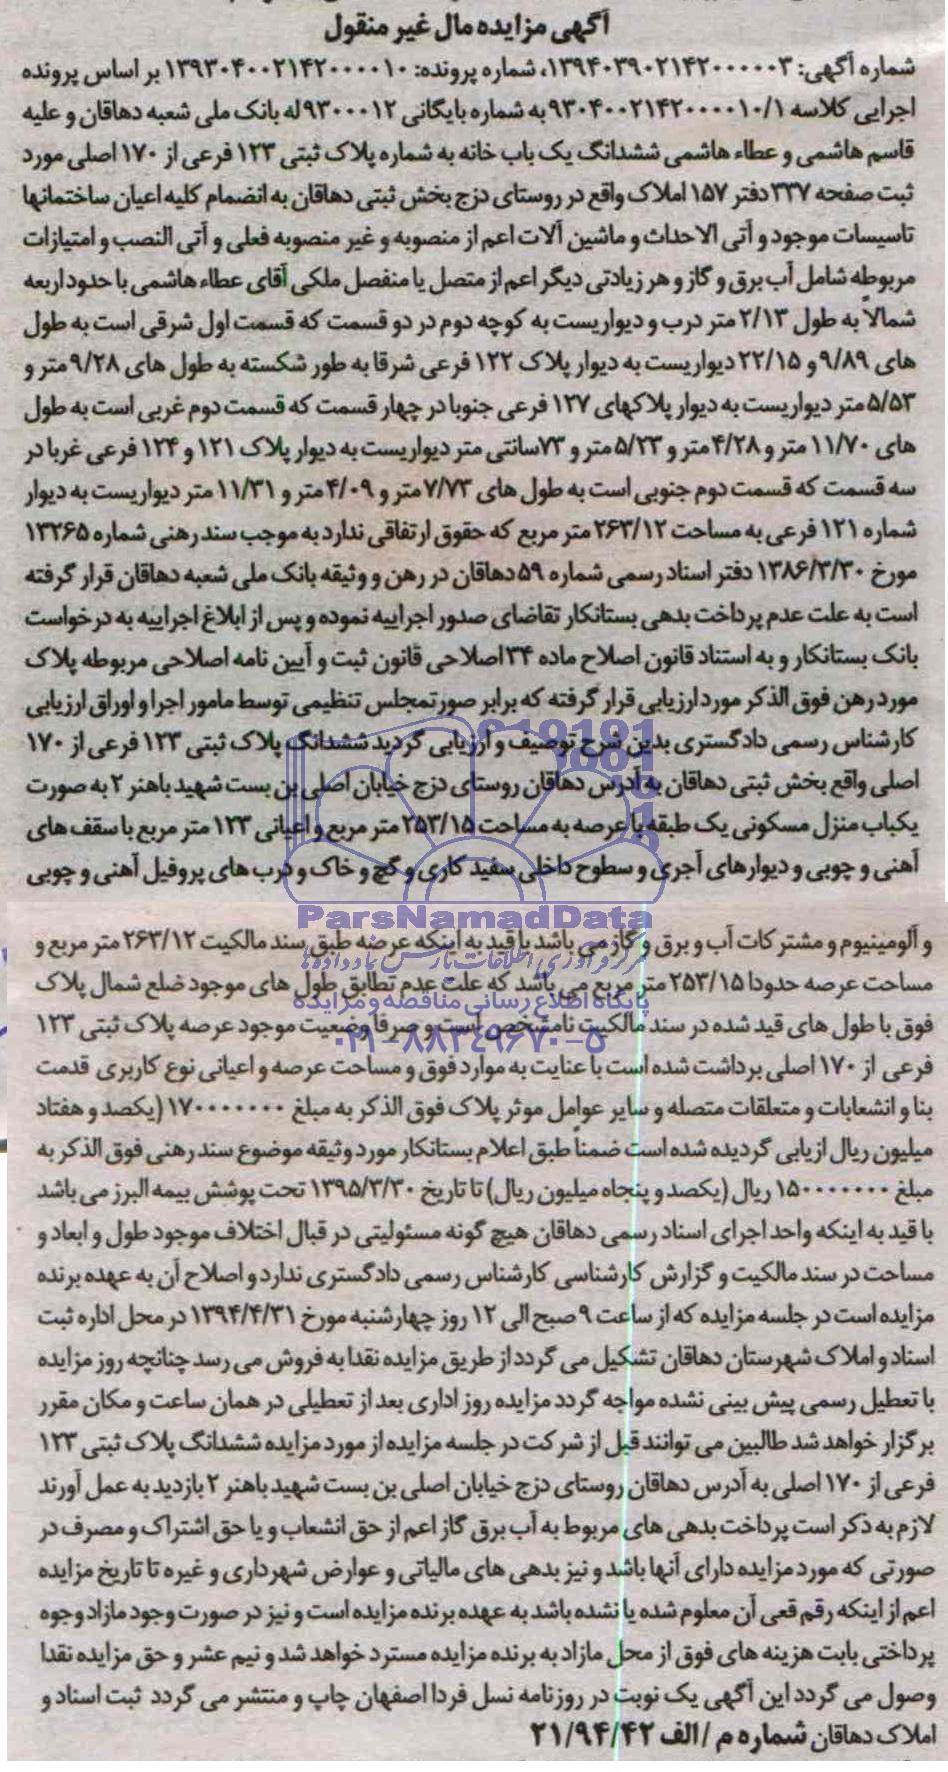 آگهی مزایده مال غیر منقول
شماره آگهی: ۱۳۹۴۰۳۹۰۲۱۴۲۰۰۰۰۰۳، شماره پرونده: ۱۳۹۳۰۴۰۰۲۱۴۲۰۰۰۰۱۰ بر اساس پرونده
اجرایی کلاسه ۹۳۰۴۰۰۲۱۴۲۰۰۰۰۱۰/۱ به شماره بایگانی ۹۳۰۰۰۱۲ له بانک ملی شعبه دهاقان و علیه
قاسم هاشمی و عطاء هاشمی ششدانگ یک باب خانه به شماره پلاک ثبتی ۱۲۳ فرعی از ۱۷۰ اصلی مورد
ثبت صفحه ۳۳۷ دفتر ۱۵۷ املاک واقع در روستای دزج بخش ثبتی دهاقان به انضمام کلیه اعیان ساختمانها
تاسیسات موجود و آتی الاحداث و ماشین آلات اعم از منصوبه و غیر منصوبه فعلی و آتی النصب و امتیازات
مربوطه شامل آب برق و گاز و هر زیادتی دیگر اعم از متصل یا منفصل ملکی آقای عطاء هاشمی با حدود اربعه
شمالاً به طول ۲/۱۳ متر درب و دیواریست به کوچه دوم در دو قسمت که قسمت اول شرقی است به طول
های ۹/۸۹ و ۲۲/۱۵ دیواریست به دیوار پلاک ۱۲۲ فرعی شرقا به طور شکسته به طول های ۹/۲۸ متر و
۵/۵۳ متر دیواریست به دیوار پلاکهای ۱۲۷ فرعی جنوبا در چهار قسمت که قسمت دوم غربی است به طول
های ۱۱/۷۰ متر و ۴/۲۸ متر و ۵/۲۳ متر و ۷۳ سانتی متر دیواریست به دیوار پلاک ۱۲۱ و ۱۲۴ فرعی غربا در
سه قسمت که قسمت دوم جنوبی است به طول های ۷/۷۳ متر و ۴/۰۹ متر و ۱۱/۳۱ متر دیواریست به دیوار
شماره ۱۲۱ فرعی به مساحت ۲۶۳/۱۲ متر مربع که حقوق ارتفاقی ندارد به موجب سند رهنی شماره ۱۳۲۶۵
مورخ ۱۳۸۶/۳/۳۰ دفتر اسناد رسمی شماره ۵۹ دهاقان در رهن و وثیقه بانک ملی شعبه دهاقان قرار گرفته
است به علت عدم پرداخت بدهی بستانکار تقاضای صدور اجراییه نموده و پس از ابلاغ اجراییه به درخواست
بانک بستانکار و به استناد قانون اصلاح ماده ۳۴ اصلاحی قانون ثبت و آیین نامه اصلاحی مربوطه پلاک
مورد رهن فوق الذکر مورد ارزیابی قرار گرفته که برابر صورتمجلس تنظیمی توسط مامور اجرا و اوراق ارزیابی
کارشناس رسمی دادگستری بدین شرح توصیف و ارزیابی گردید ششدانگ پلاک ثبتی ۱۲۳ فرعی از ۱۷۰
اصلی واقع بخش ثبتی دهاقان به آدرس دهاقان روستای دزج خیابان اصلی بن بست شهید باهنر ۲ به صورت
یکباب منزل مسکونی یک طبقه با عرصه به مساحت ۲۵۳/۱۵ متر مربع و اعیانی ۱۲۳ متر مربع با سقف های
آهنی و چوبی و دیوارهای آجری و سطوح داخلی سفید کاری و گچ و خاک و درب های پروفیل آهنی و چوبی
ParsNamadData
و آلومینیوم و مشترکات آب و برق و گاز می باشد با قید به اینکه عرضه طبق سند مالکیت ۲۶۳/۱۲ متر مربع و
مرکز فرآوری اطلاعات پارس نماد داده ها
مساحت عرصه حدودا ۲۵۳/۱۵ متر مربع می باشد که علت عدم تطابق طول های موجود ضلع شمال پلاک
پایگاه اطلاع رسانی مناقصه و مزایده
فوق با طول های قید شده در سند مالکیت نامشخص است و صرفا وضعیت موجود عرصه پلاک ثبتی ۱۲۳
۰۲۱-۸۸۳۴۹۶۷۰-۵
فرعی از ۱۷۰ اصلی برداشت شده است با عنایت به موارد فوق و مساحت عرصه و اعیانی نوع کاربری قدمت
بنا و انشعابات و متعلقات متصله و سایر عوامل موثر پلاک فوق الذکر به مبلغ ۱۷۰۰۰۰۰۰۰ (یکصد و هفتاد
میلیون ریال ارزیابی گردیده شده است ضمناً طبق اعلام بستانکار مورد وثیقه موضوع سند رهنی فوق الذکر به
مبلغ ۱۵۰۰۰۰۰۰۰ ریال (یکصد و پنجاه میلیون ریال) تا تاریخ ۱۳۹۵/۳/۳۰ تحت پوشش بیمه البرز می باشد
با قید به اینکه واحد اجرای اسناد رسمی دهاقان هیچ گونه مسئولیتی در قبال اختلاف موجود طول و ابعاد و
مساحت در سند مالکیت و گزارش کارشناسی کارشناس رسمی دادگستری ندارد و اصلاح آن به عهده برنده
مزایده است در جلسه مزایده که از ساعت ۹ صبح الی ۱۲ روز چهارشنبه مورخ ۱۳۹۴/۴/۳۱ در محل اداره ثبت
اسناد و املاک شهرستان دهاقان تشکیل می گردد از طریق مزایده نقدا به فروش می رسد چنانچه روز مزایده
با تعطیل رسمی پیش بینی نشده مواجه گردد مزایده روز اداری بعد از تعطیلی در همان ساعت و مکان مقرر
برگزار خواهد شد طالبین می توانند قبل از شرکت در جلسه مزایده از مورد مزایده ششدانگ پلاک ثبتی ۱۲۳
فرعی از ۱۷۰ اصلی به آدرس دهاقان روستای دزج خیابان اصلی بن بست شهید باهنر ۲ بازدید به عمل آورند
لازم به ذکر است پرداخت بدهی های مربوط به آب برق گاز اعم از حق انشعاب و یا حق اشتراک و مصرف در
صورتی که مورد مزایده دارای آنها باشد و نیز بدهی های مالیاتی و عوارض شهرداری و غیره تا تاریخ مزایده
اعم از اینکه رقم قعی آن معلوم شده یا نشده باشد به عهده برنده مزایده است و نیز در صورت وجود مازاد وجوه
پرداختی بابت هزینه های فوق از محل مازاد به برنده مزایده مسترد خواهد شد و نیم عشر و حق مزایده نقدا
وصول می گردد این آگهی یک نوبت در روزنامه نسل فردا اصفهان چاپ و منتشر می گردد ثبت اسناد و
املاک دهاقان شماره م / الف ۲۱/۹۴/۴۲